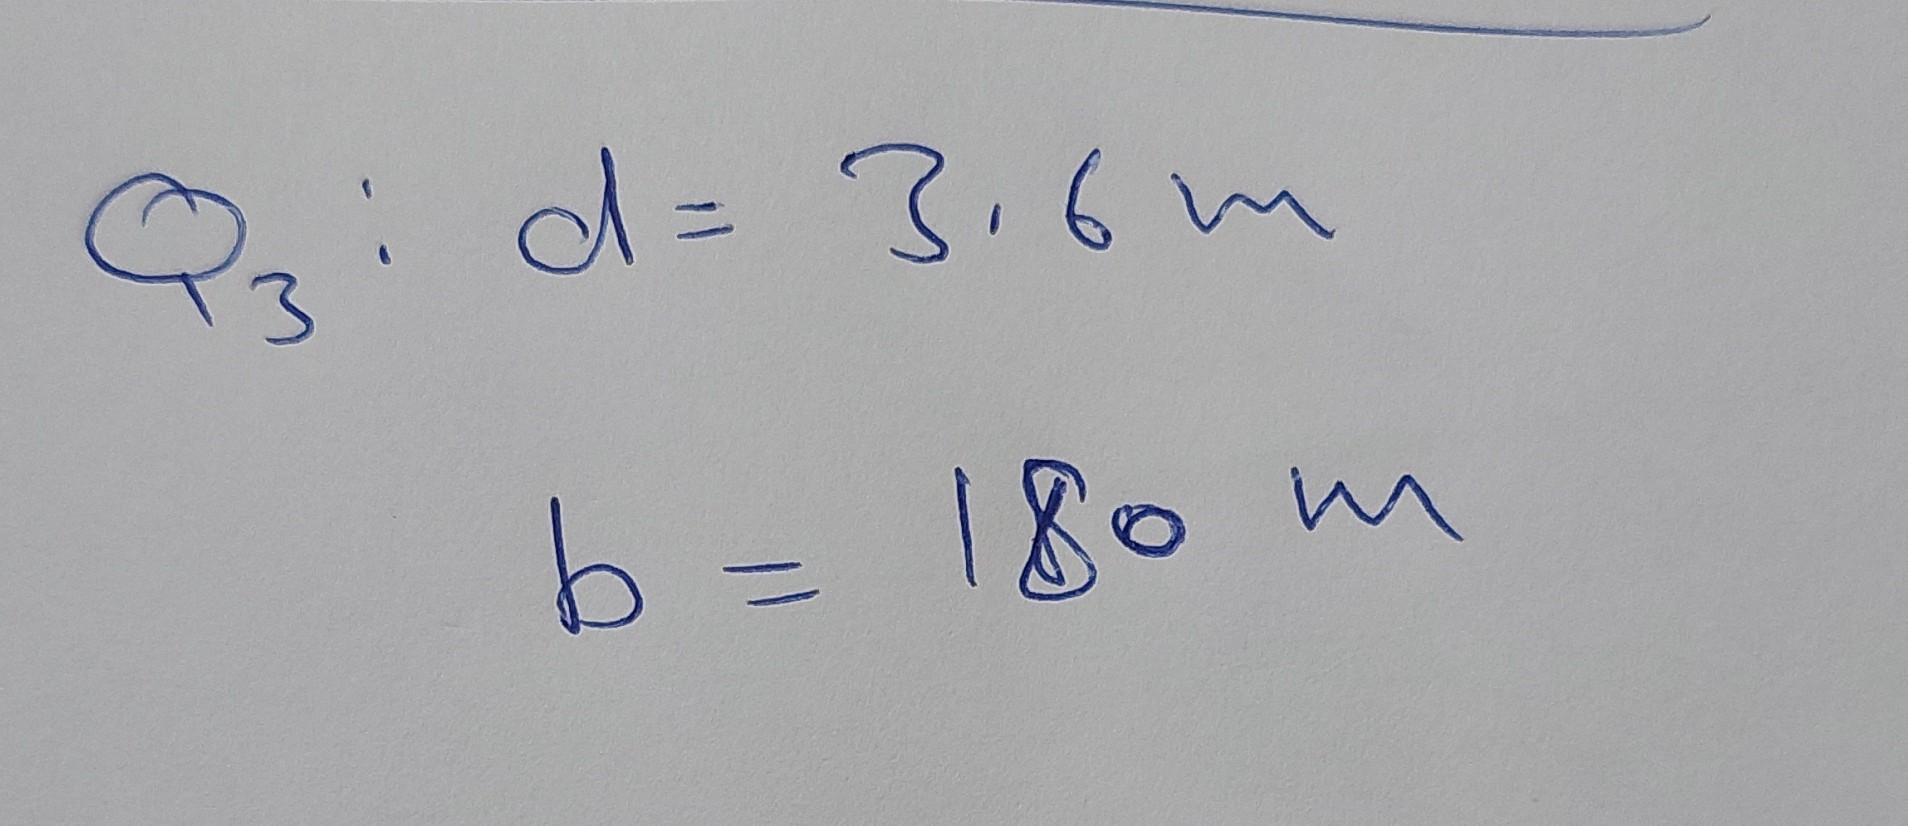 Q3: d = 3.6 m
b = 180 m